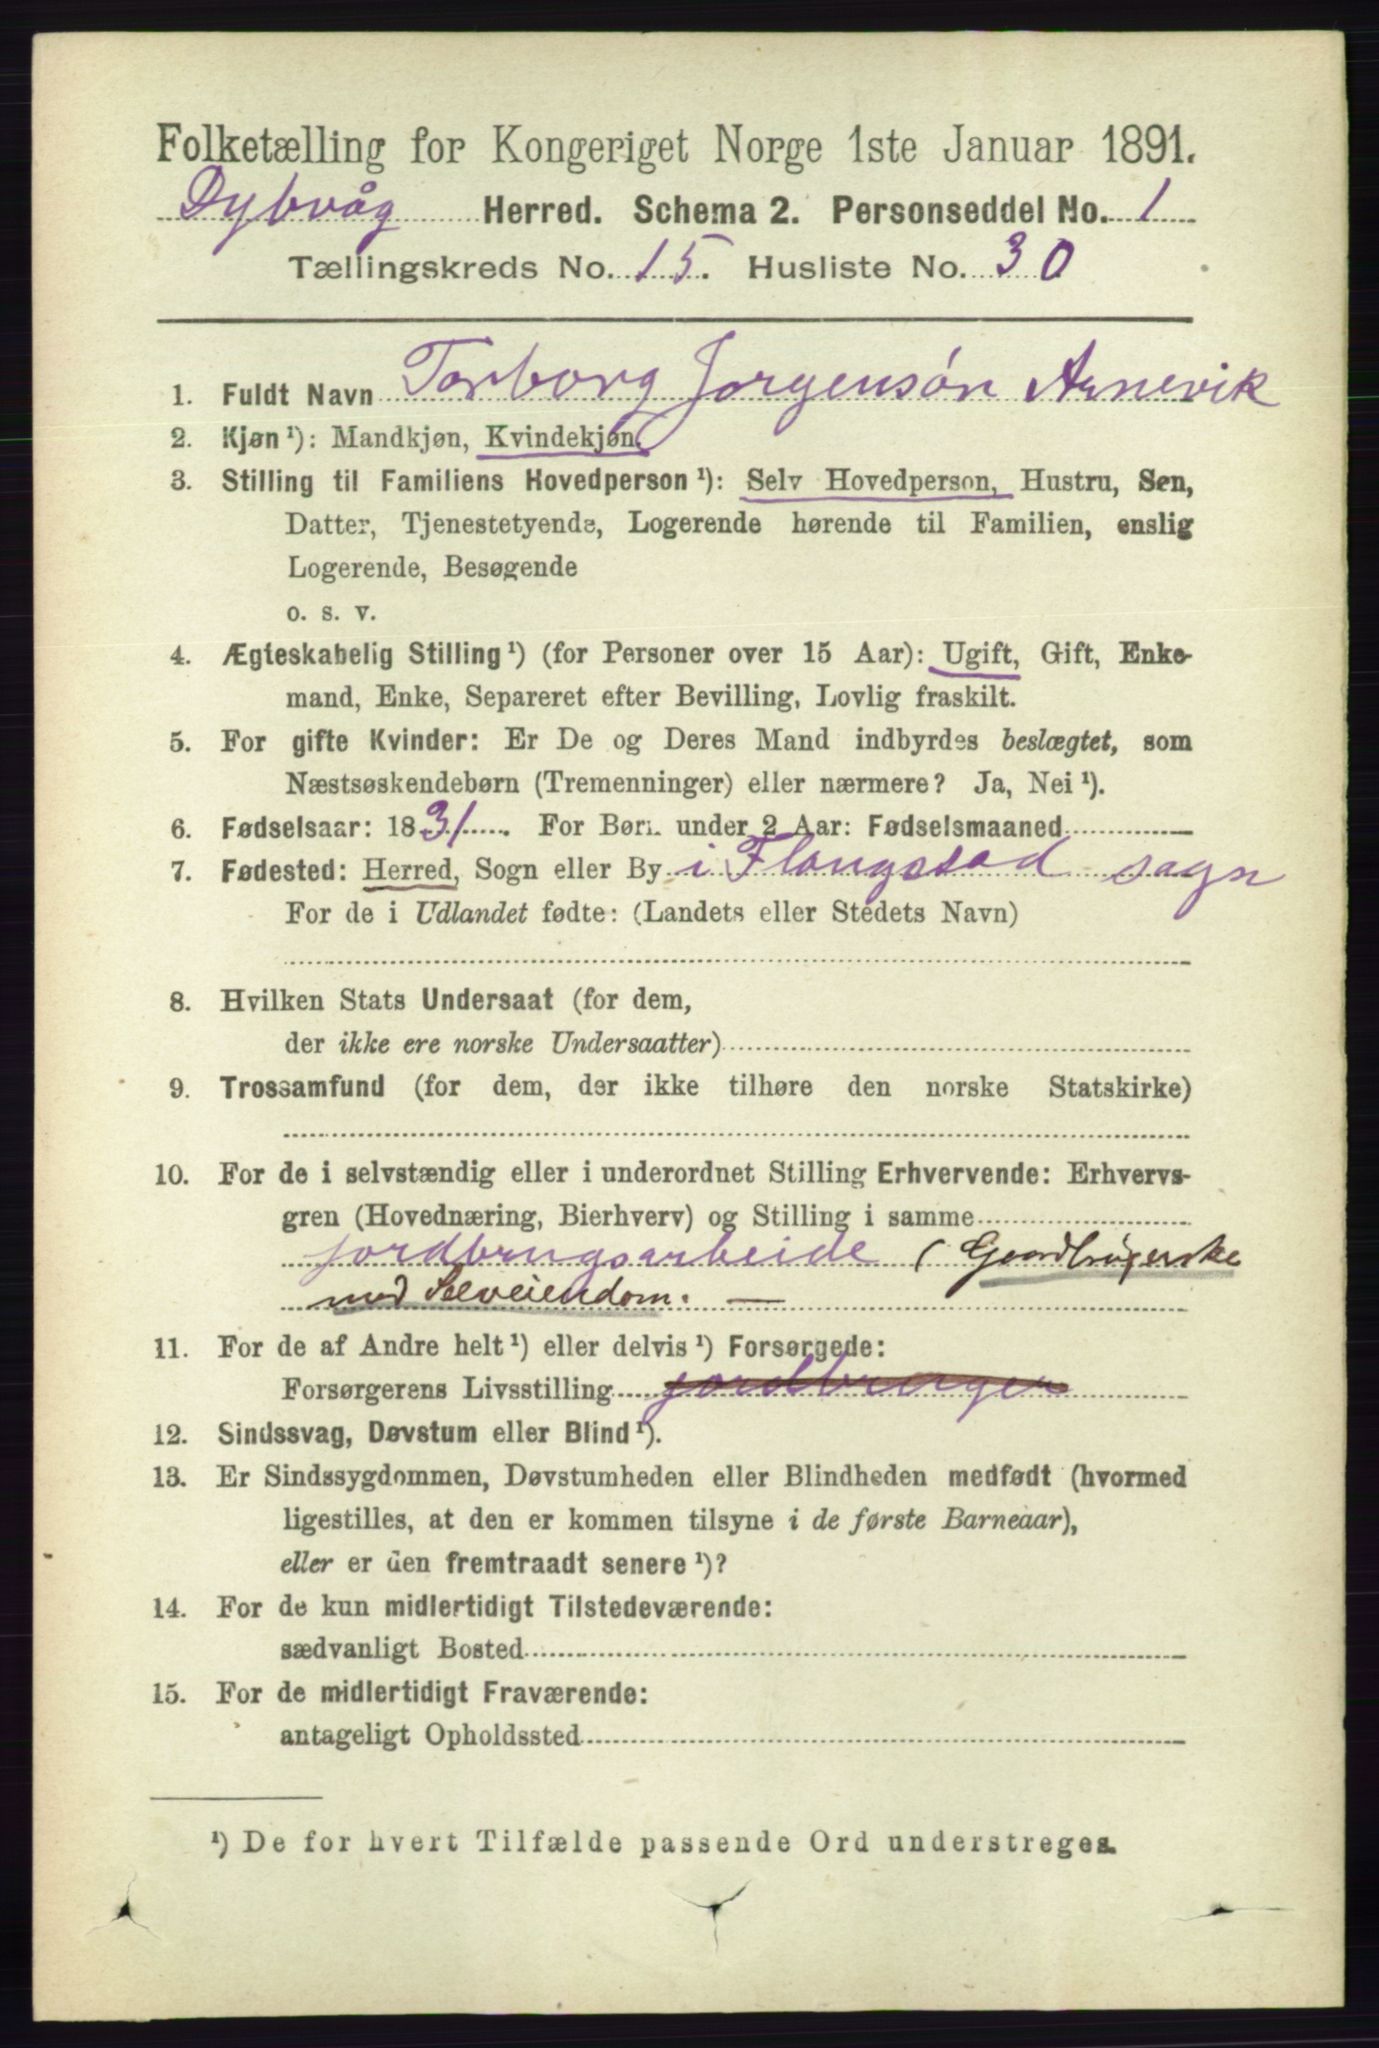 Folketælling for Kongeriget Norge 1ste Januar 1891.
Dybvåg Herred. Schema 2. Personseddel No. 1
Tællingskreds No. 15. Husliste No. 30
1. Fuldt Navn Torborg Jorgensøn Arnevik
2. Kjøn ¹): Mandkjøn, Kvindekjøn.
3. Stilling til Familiens Hovedperson ¹): Selv Hovedperson, Hustru, Søn,
Datter, Tjenestetyende, Logerende hørende til Familien, enslig
Logerende, Besøgende
o. s. v.
4. Ægteskabelig Stilling ¹) (for Personer over 15 Aar): Ugift, Gift, Enke-
mand, Enke, Separeret efter Bevilling, Lovlig fraskilt.
5. For gifte Kvinder: Er De og Deres Mand indbyrdes beslægtet, som
Næstsøskendebørn (Tremenninger) eller nærmere? Ja, Nei ¹).
6. Fødselsaar: 1831. For Børn under 2 Aar: Fødselsmaaned
7. Fødested: Herred, Sogn eller By i Flangstad sogn
For de i Udlandet fødte: (Landets eller Stedets Navn)
8. Hvilken Stats Undersaat (for dem,
der ikke ere norske Undersaatter)
9. Trossamfund (for dem, der ikke tilhøre den norske Statskirke)
10. For de i selvstændig eller i underordnet Stilling Erhvervende: Erhvervs-
gren (Hovednæring, Bierhverv) og Stilling i samme
jordbrugsarbeide (Gaardbrugerske
med Selveiendom. —
11. For de af Andre helt ¹) eller delvis ¹) Forsørgede:
Forsørgerens Livsstilling jordbruger
12. Sindssvag, Døvstum eller Blind ¹).
13. Er Sindssygdommen, Døvstumheden eller Blindheden medfødt (hvormed
ligestilles, at den er kommen tilsyne i de første Barneaar),
eller er den fremtraadt senere ¹)?
14. For de kun midlertidigt Tilstedeværende:
sædvanligt Bosted
15. For de midlertidigt Fraværende:
antageligt Opholdssted
¹) De for hvert Tilfælde passende Ord understreges.